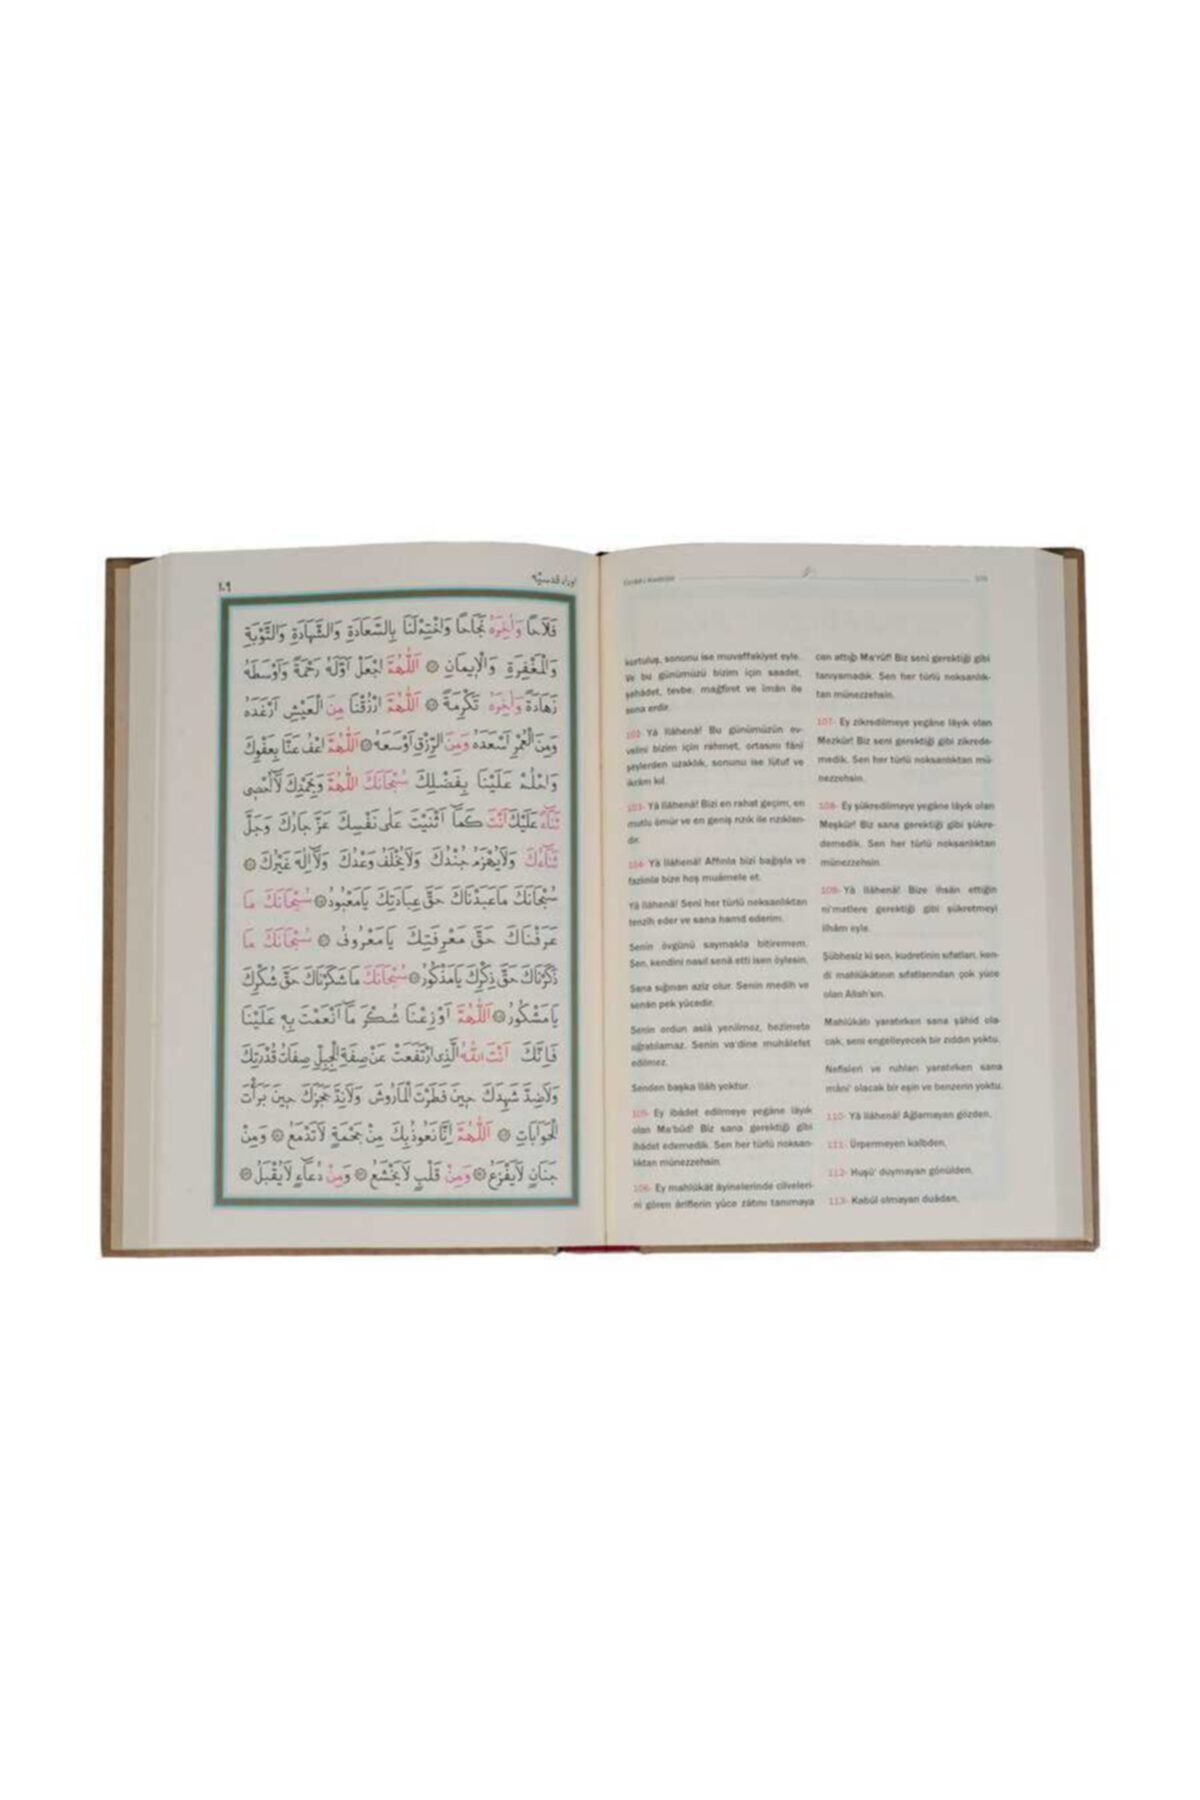 ١٠٩
اوراد قدسيّه
فَلَاحًا وَاٰخِرَهُ نَجَاحًا وَاخْتِمْ لَنَا بِالسَّعَادَةِ وَالشَّهَادَةِ وَالتَّوْبَةِ
وَالْمَغْفِرَةِ وَالْاِيمَانِ ۞ اَللّٰهُمَّ اجْعَلْ اَوَّلَهُ رَحْمَةً وَاَوْسَطَهُ
زَهَادَةً وَاٰخِرَهُ تَكْرِمَةً ۞ اَللّٰهُمَّ ارْزُقْنَا مِنَ الْعَيْشِ اَرْغَدَهُ
وَمِنَ الْعُمْرِ اَسْعَدَهُ وَمِنَ الرِّزْقِ اَوْسَعَهُ ۞ اَللّٰهُمَّ اعْفُ عَنَّا بِعَفْوِكَ
وَاحْلُمْ عَلَيْنَا بِفَضْلِكَ سُبْحَانَكَ اللّٰهُمَّ وَبِحَمْدِكَ لَا اُحْصِى
ثَنَاءً عَلَيْكَ اَنْتَ كَمَا اَثْنَيْتَ عَلٰى نَفْسِكَ عَزَّ جَارُكَ وَجَلَّ
ثَنَاؤُكَ وَلَا يُهْزَمُ جُنْدُكَ وَلَا يُخْلَفُ وَعْدُكَ وَلَا اِلٰهَ غَيْرُكَ ۞
سُبْحَانَكَ مَا عَبَدْنَاكَ حَقَّ عِبَادَتِكَ يَا مَعْبُودُ ۞ سُبْحَانَكَ مَا
عَرَفْنَاكَ حَقَّ مَعْرِفَتِكَ يَا مَعْرُوفُ ۞ سُبْحَانَكَ مَا
ذَكَرْنَاكَ حَقَّ ذِكْرِكَ يَا مَذْكُورُ ۞ سُبْحَانَكَ مَا شَكَرْنَاكَ حَقَّ شُكْرِكَ
يَا مَشْكُورُ ۞ اَللّٰهُمَّ اَوْزِعْنَا شُكْرَ مَا اَنْعَمْتَ بِهِ عَلَيْنَا
فَاِنَّكَ اَنْتَ اللّٰهُ الَّذِى ارْتَفَعَتْ عَنْ صِفَةِ الْجِبِلِّ صِفَاتُ قُدْرَتِكَ
وَلَا ضِدَّ شَهِدَكَ حِينَ فَطَرْتَ الْمَارُوشَ وَلَا نِدَّ حَجَزَكَ حِينَ بَرَأْتَ
الْحَوَابَاتِ ۞ اَللّٰهُمَّ اِنَّا نَعُوذُ بِكَ مِنْ جَحْمَةٍ لَا تَدْمَعُ ۞ وَمِنْ
جَنَانٍ لَا يَفْزَعُ ۞ وَمِنْ قَلْبٍ لَا يَخْشَعُ ۞ وَمِنْ دُعَاءٍ لَا يُقْبَلُ ۞
kurtuluş, sonunu ise muvaffakiyet eyle.
Ve bu günümüzü bizim için saadet,
şehâdet, tevbe, mağfiret ve îmân ile
sona erdir.
102- Yâ ilâhenâ! Bu günümüzün ev-
velini bizim için rahmet, ortasını fânî
şeylerden uzaklık, sonunu ise lütuf ve
ikrâm kıl.
103- Yâ ilâhenâ! Bizi en rahat geçim, en
mutlu ömür ve en geniş rızık ile rızıklan-
dır.
104- Yâ ilâhenâ! Affınla bizi bağışla ve
fazlınla bize hoş muâmele et.
Yâ ilâhenâ! Seni her türlü noksanlıktan
tenzîh eder ve sana hamd ederim.
Senin övgünü saymakla bitiremem.
Sen, kendini nasıl senâ etti isen öylesin.
Sana sığınan azîz olur. Senin medih ve
senân pek yücedir.
Senin ordun aslâ yenilmez, hezimete
uğratılamaz. Senin va'dine muhâlefet
edilmez.
Senden başka ilâh yoktur.
105- Ey ibâdet edilmeye yegâne lâyık
olan Ma'bûd! Biz sana gerektiği gibi
ibâdet edemedik. Sen her türlü noksan-
lıktan münezzehsin.
106- Ey mahlûkât âyinelerinde cilveleri-
ni gören âriflerin yüce zâtını tanımaya
can attığı Ma'rûf! Biz seni gerektiği gibi
tanıyamadık. Sen her türlü noksanlık-
tan münezzehsin.
107- Ey zikredilmeye yegâne lâyık olan
Mezkûr! Biz seni gerektiği gibi zikrede-
medik. Sen her türlü noksanlıktan mü-
nezzehsin.
108- Ey şükredilmeye yegâne lâyık olan
Meşkûr! Biz sana gerektiği gibi şükre-
demedik. Sen her türlü noksanlıktan
münezzehsin.
109- Yâ ilâhenâ! Bize ihsân ettiğin
ni'metlere gerektiği gibi şükretmeyi
ilhâm eyle.
Şübhesiz ki sen, kudretinin sıfatları, ken-
di mahlûkâtının sıfatlarından çok yüce
olan Allah'sın.
Mahlûkâtı yaratırken sana şâhid ola-
cak, seni engelleyecek bir zıddın yoktu.
Nefisleri ve ruhları yaratırken sana
mâni' olacak bir eşin ve benzerin yoktu.
110- Yâ ilâhenâ! Ağlamayan gözden,
111- Ürpermeyen kalbden,
112- Huşû' duymayan gönülden,
113- Kabûl olmayan duâdan,